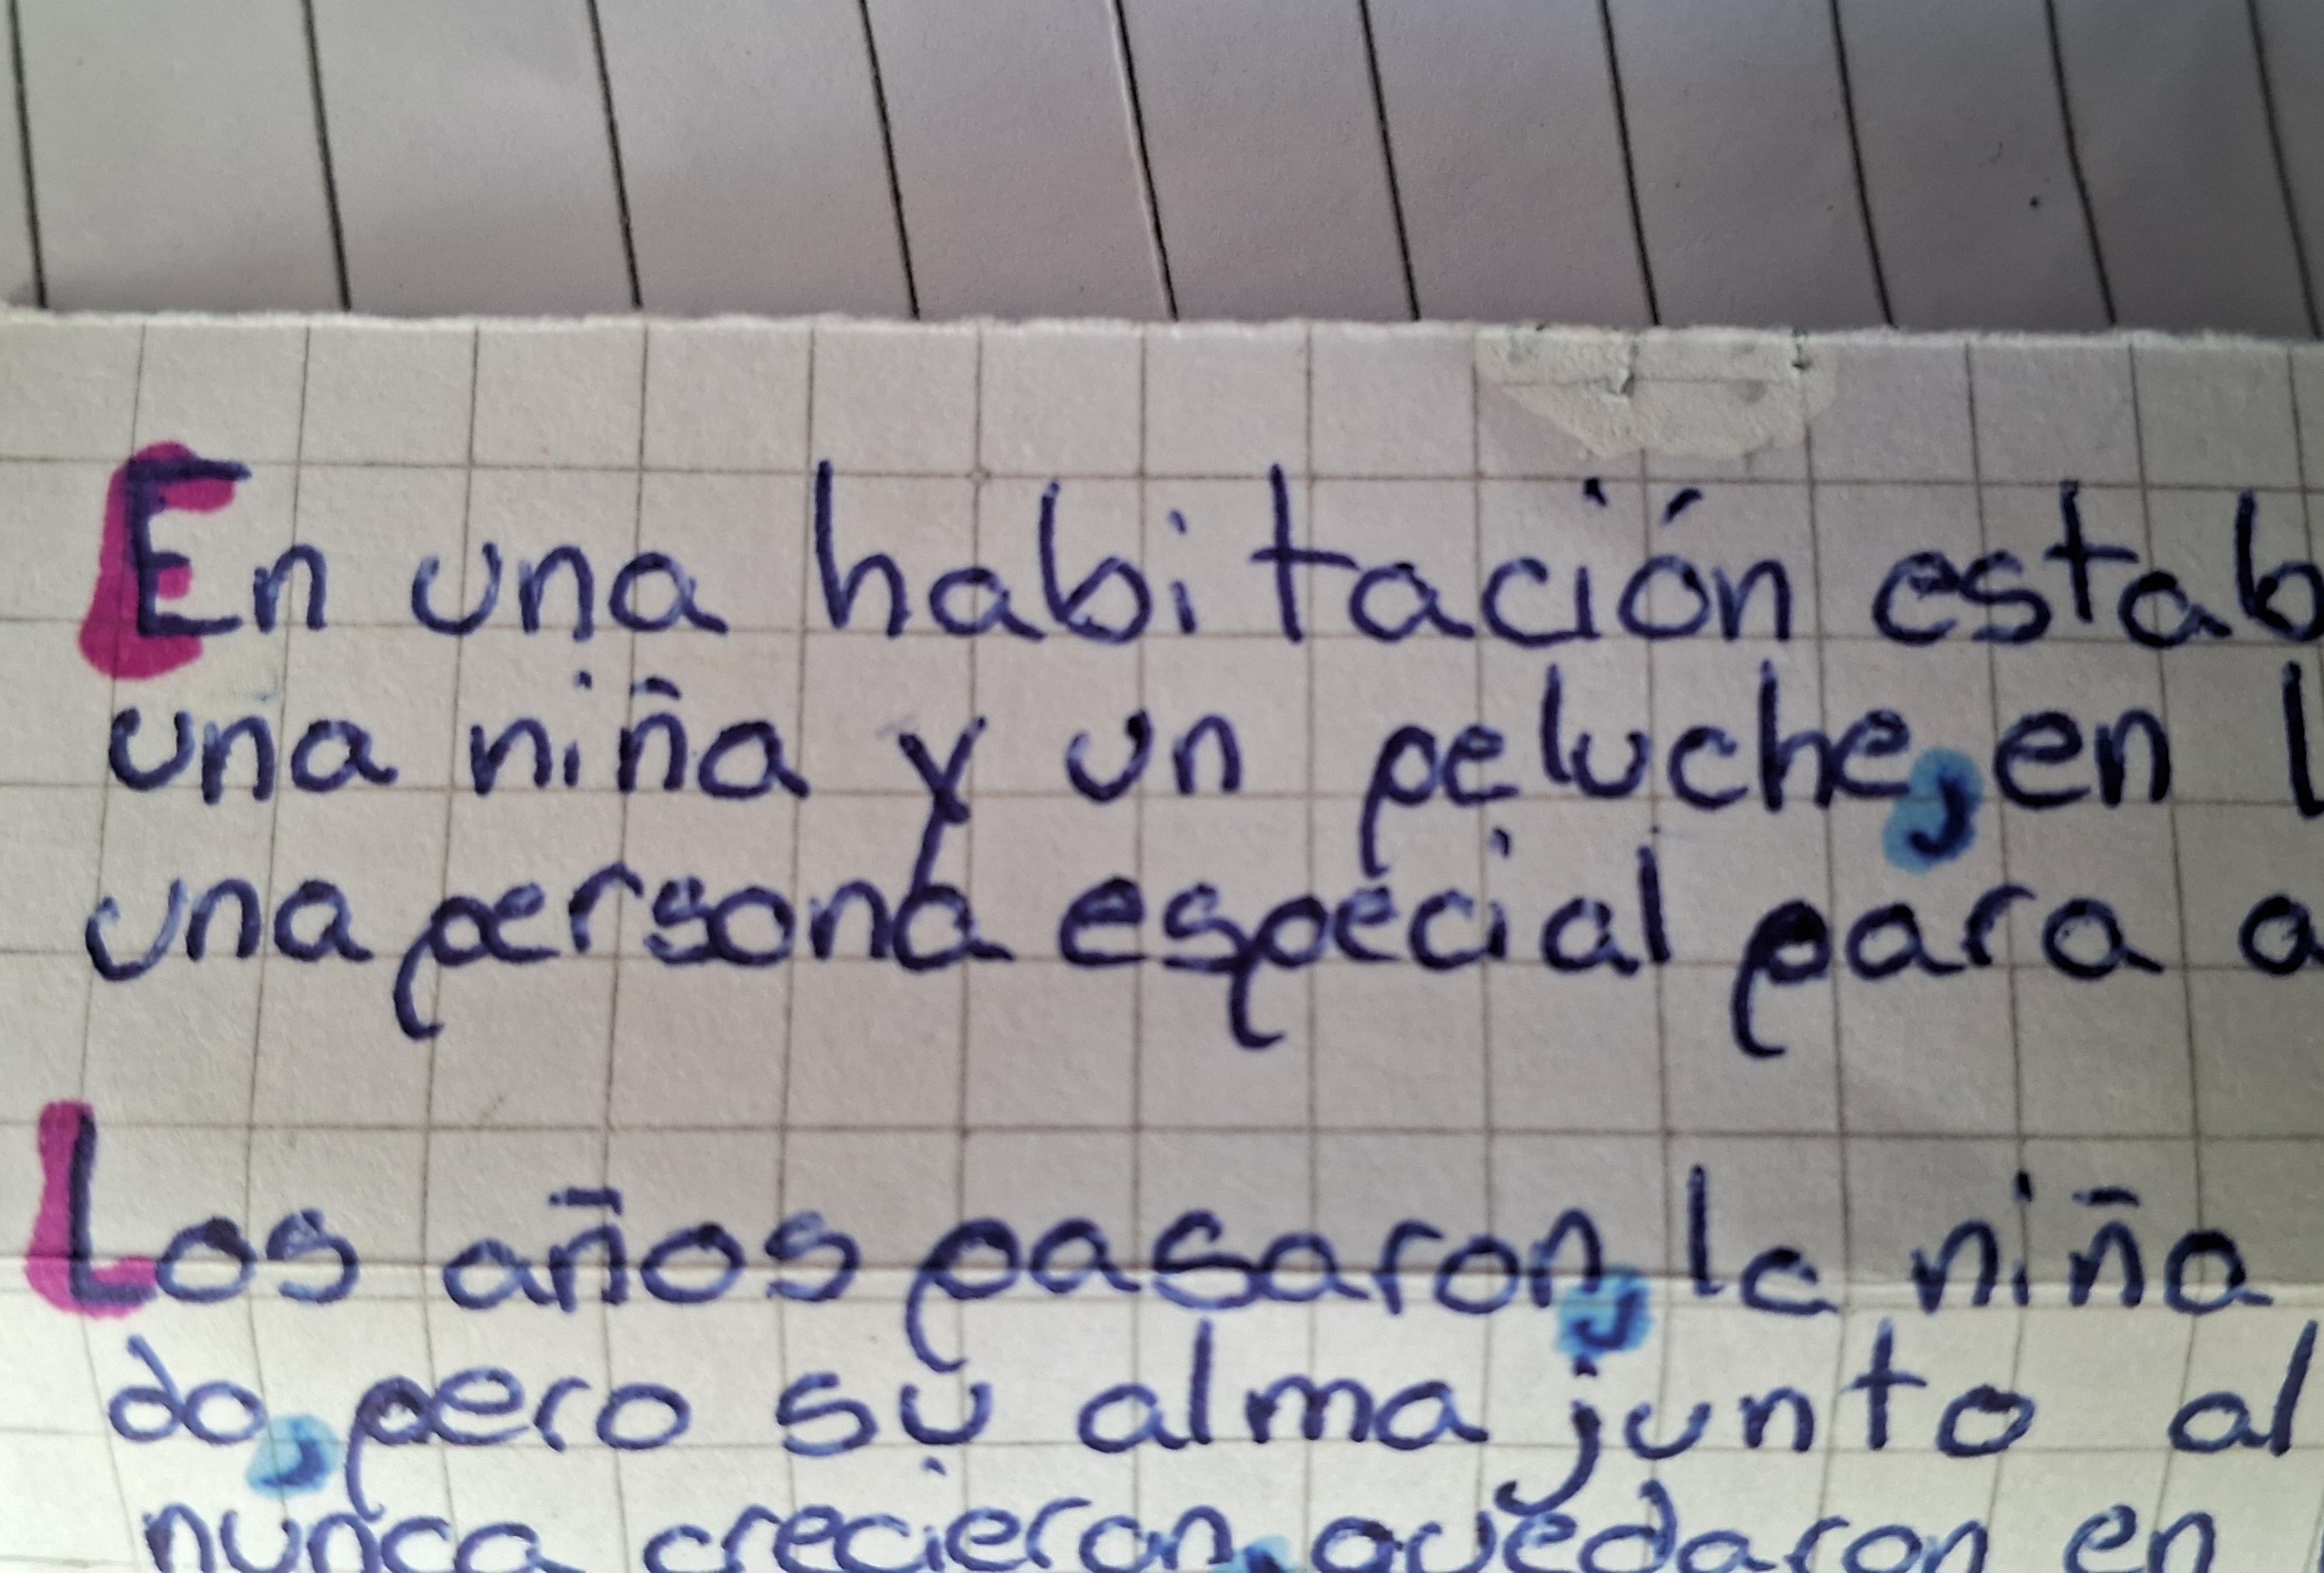 En una habitación estab
una niña y un peluche, en l
una persona especial para a
Los años pasaron, la niña
do, pero su alma junto al
nunca crecieron, quedaron en